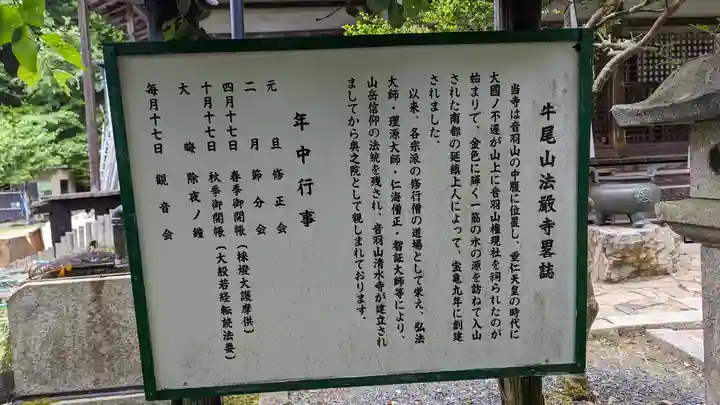 牛尾山法嚴寺畧誌
当寺は音羽山の中腹に位置し、垂仁天皇の時代に
大國ノ不遅が山上に音羽山権現社を祠られたのが
始まりで、金色に輝く一筋の水の源を訪ねて入山
された南都の延鎮上人によって、宝亀九年に創建
されました。
以来、各宗派の修行僧の道場として栄え、弘法
大師・理源大師・仁海僧正・智証大師等により、
山岳信仰の法統を残され、音羽山清水寺が建立され
ましてから奥之院として親しまれております。
年中行事
元旦 修正会
二月 節分会
四月十七日 春季御開帳(採燈大護摩供)
十月十七日 秋季御開帳(大般若経転読法要)
大晦 除夜ノ鐘
毎月十七日 観音会